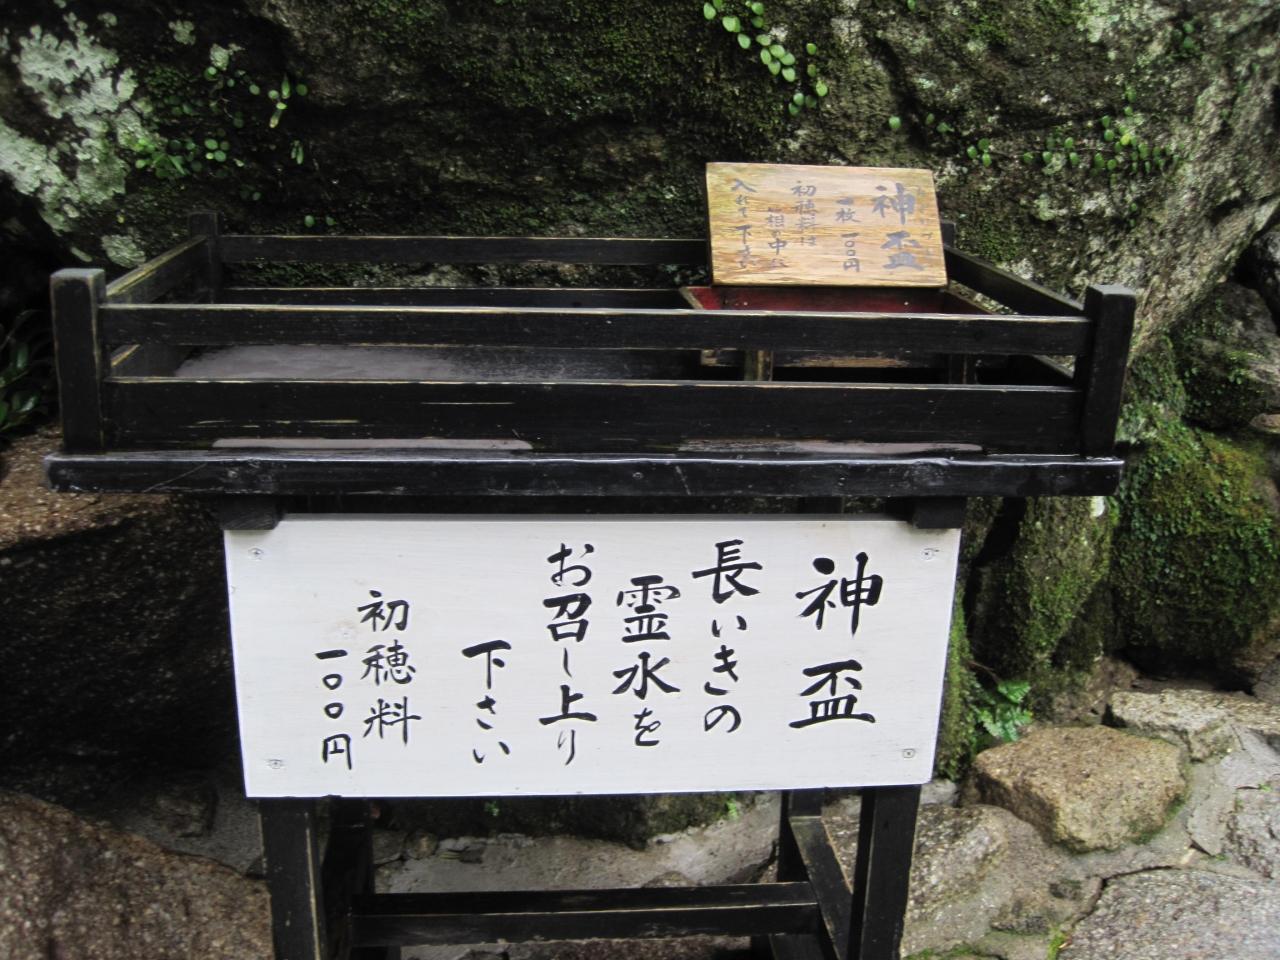 神盃
一枚 一〇〇円
初穂料は
箱の中に
入れて下さい
神盃
長いきの
霊水を
お召し上り
下さい
初穂料
一〇〇円